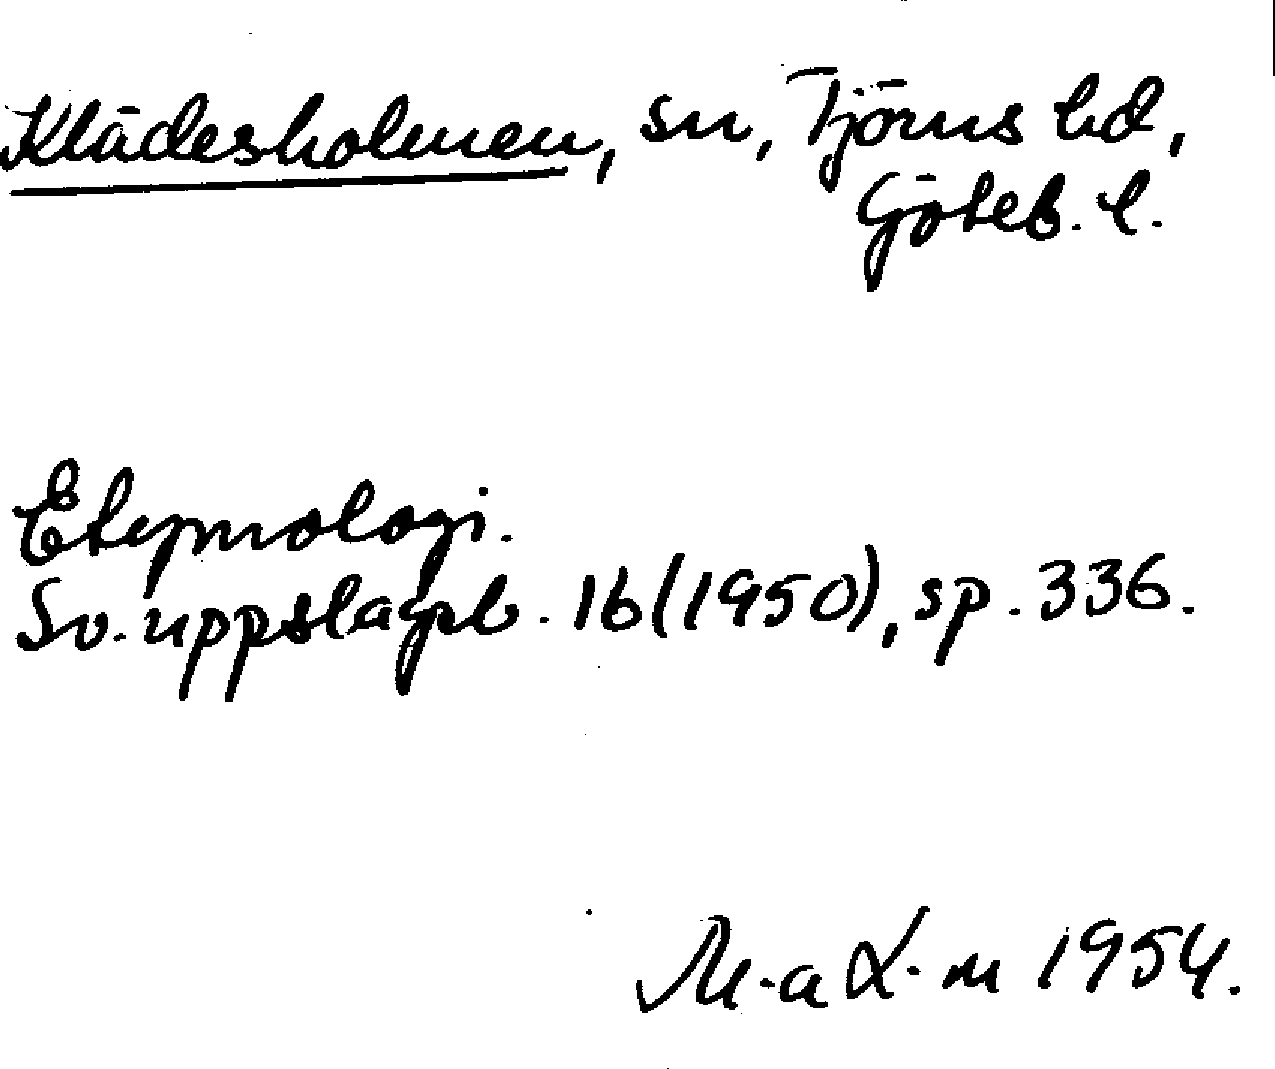 Klädesholmen, sn, Tjörns hd,
Göteb. l.
Etymologi.
Sv. uppslagsb. 16 (1950), sp. 336.
M-a L-m 1954.